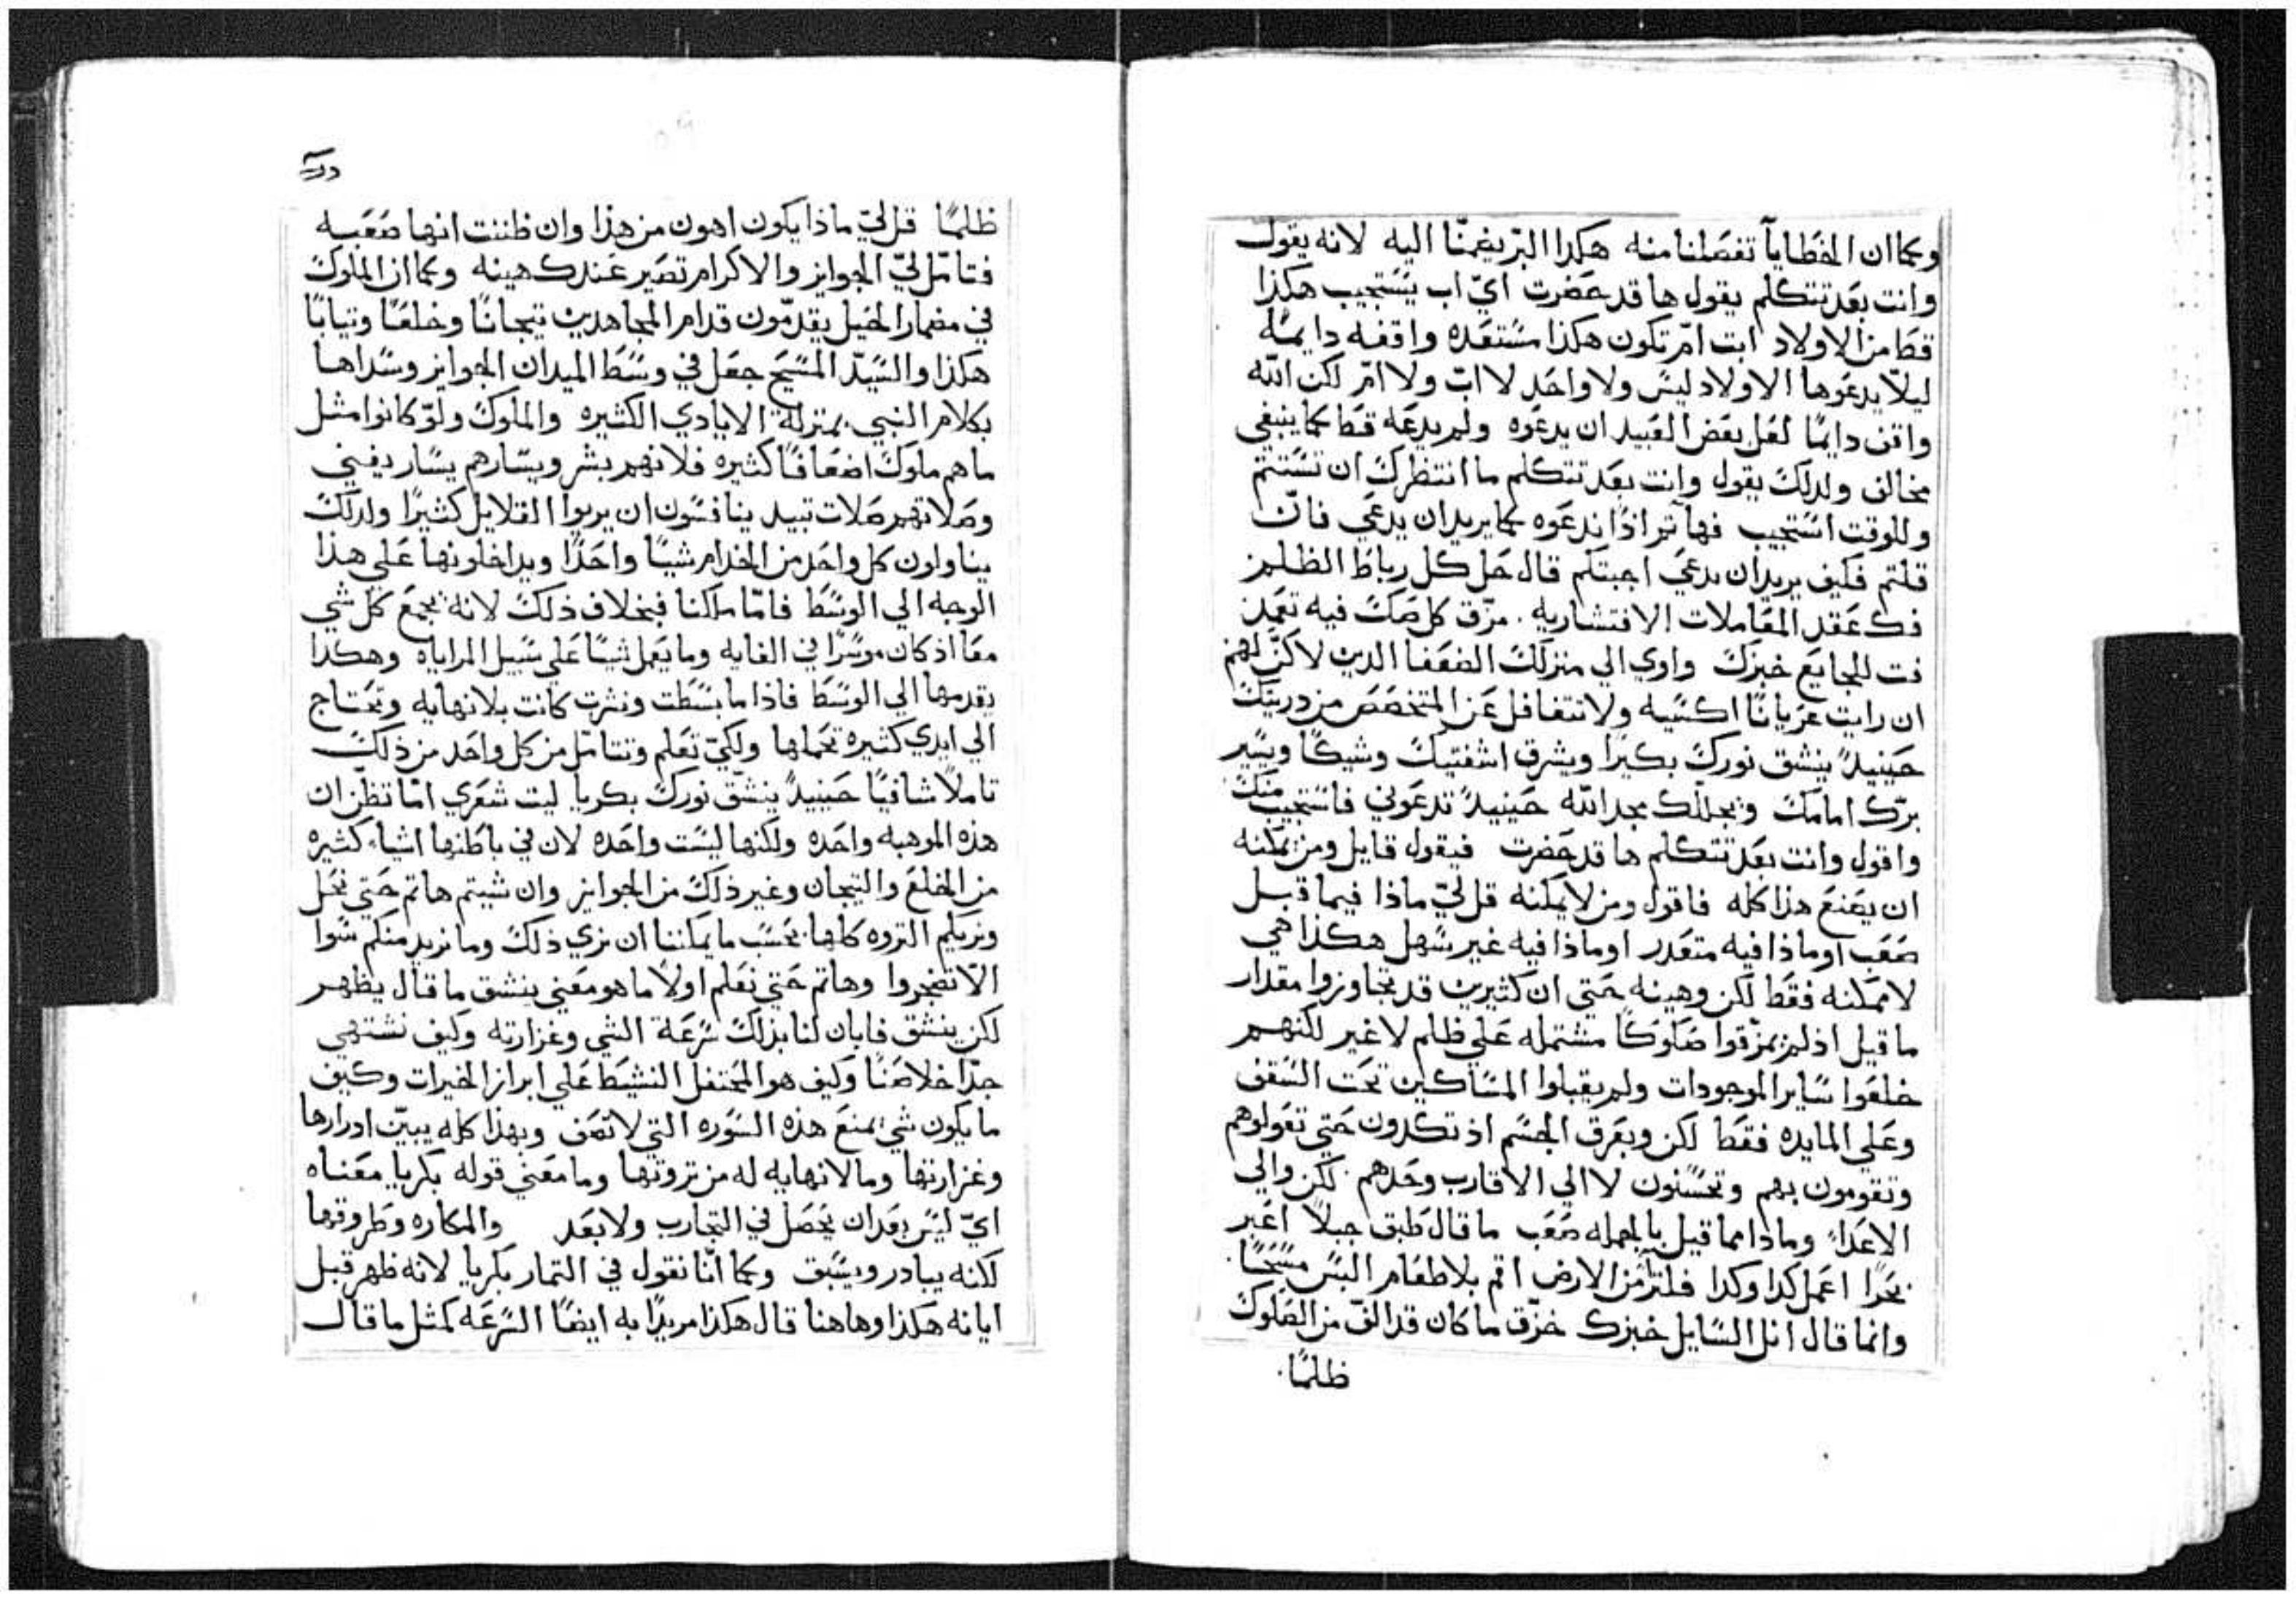 وكما ان الخطايا تفصلنا منه هكدا البر يضمنا اليه لانه يقول
وانت بعد تتكلم يقول ها قد حضرت اي اب يستجيب هكذا
قط من الاولاد ايت ام تكون هكذا مستعده واقفه دايمًا
ليلا يدعوها الاولاد ليس ولا واحد لا اب ولا ام لكن الله
واقف دايمًا لعل بعض العبيد ان يدعوه ولم يدعه قط كما ينبغي
مخالف ولدلك يقول وانت بعد تتكلم ما انتظرك ان تستتم
وللوقت استجيب فهاتم اذًا ندعوه كما يريد ان يدعي فان
قلتم فكيف يريد ان يدعي اجبتكم قال حل كل رباط الظلم
فك عقد المعاملات الاقتشاريه. مزق كل صك فيه تعد
فت للجايع خبزك واوي الي منزلك الضعفا الدين لا كن لهم
ان رايت عريانًا اكسيه ولا تتغافل عن المتخصص من دريتك
حينيدٍ ينشق نورك بكيرًا ويشرق اشفتيك وشيكًا ويسير
برك امامك ويجللك مجد الله حينيدٍ تدعوني فاستجيب منك
واقول وانت بعد تتكلم ها قد حضرت فيقول قايل ومن يمكنه
ان يصنع هذا كله فاقول ومن لا يمكنه قل لي ماذا فيما قبل
صعب او ماذا فيه متعدر او ماذا فيه غير سهل هكذا هي
لا ممكنه فقط لكن وهينه حتي ان كثيرين قد تجاوزوا مقدار
ما قيل اذ لم يمزقوا صلوكًا مشتمله علي ظلم لا غير لكنهم
خلعوا ساير الموجودات ولم يقبلوا المساكين تحت السقف
وعلي المايده فقط لكن وبعرق الجسم اذ تكدون حتي تعولوهم
وتقومون بهم وتحسنون لا الي الاقارب وحدهم. لكن والي
الاعدا وماذا مما قيل بالجمله صعب ما قال طبق جبلًا اعبر
بحرًا اعمل كدا وكدا فلترًا من الارض اقم بلا طعام البس مسحًا.
وانما قال انل السايل خبزك خزق ما كان قد الف من الصلوك
ظلمًا.
ظلمًا قل لي ماذا يكون اهون من هذا وان ظننت انها صعبه
فتامل لي الجوايز والاكرام تصير عندك هينه وكما ان الملوك
في مضمار الخيل يقدمون قدام المجاهدين تيجانًا وخلعًا وتيابًا
هكذا والسيد المسيح جعل في وسط الميدان الجوايز وسداها
بكلام النبي بمتزلة الايادي الكثيره والملوك ولو كانوا مثل
ما هم ملوك اضعافًا كثيره فلانهم بشر ويسارهم يسار يفني
وصلاتهم صلات تبيد ينافسون ان يريوا القلايل كثيرًا ولدلك
يناولون كل واحد من الخدام شيًا واحدًا ويداخلونها علي هذا
الوجه الي الوسط فاما ملكنا فبخلاف ذلك لانه يجمع كل شي
معًا اذ كان موسرًا في الغايه وما يعمل شيًا علي سبيل المراياه وهكدا
يقدمها الي الوسط فاذا ما بسطت ونشرت كانت بلا نهايه وتحتاج
الي ايدي كثيره تحملها ولكي تعلم وتتامل من كل واحد من ذلك
تاملًا شافيًا حينيدٍ ينشق نورك بكريا ليت شعري اما تظن ان
هذه الموهبه واحده ولكنها ليست واحده لان في باطنها اشياء كثيره
من الخلع والتيجان وغير ذلك من الجوايز وان شيتم هاتم حتي نحل
ونريكم التروه كلها. بحسب ما يمكننا ان نري ذلك وما نريد منكم سوا
الا تضجروا وهاتم حتي نعلم اولًا ما هو معني ينشق ما قال يظهر
لكن ينشق فابان لنا بذلك سرعة الشي وغزارته وكيف نشتهي
جدًا خلاصنا وكيف هو المحتفل النشيط علي ابراز الخيرات وكيف
ما يكون شي يمنع هذه السوره التي لا تصف وبهذا كله يبين ادرارها
وغزارتها وما لا نهايه له من تروتها وما معني قوله بكريا معناه
اي ليس بعد ان يحصل في التجارب ولا بعد والمكاره وطروقها
لكنه يبادر ويسبق وكما انا نقول في التمار بكريا لانه ظهر قبل
ايانه هكذا وهاهنا قال هكذا مريدًا به ايضًا السرعه كمثل ما قال